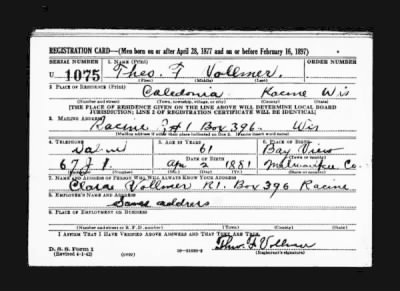 REGISTRATION CARD—(Men born on or after April 28, 1877 and on or before February 16, 1897)
SERIAL NUMBER
1. NAME (Print)
U 1075
Theo. F Vollmer.
(First) (Middle) (Last)
2. PLACE OF RESIDENCE (Print)
Caledonia. Racine Wis
(Number and street) (Town, township, village, or city) (County) (State)
[THE PLACE OF RESIDENCE GIVEN ON THE LINE ABOVE WILL DETERMINE LOCAL BOARD
JURISDICTION; LINE 2 OF REGISTRATION CERTIFICATE WILL BE IDENTICAL]
3. MAILING ADDRESS
Racine R#1 Box 396. Wis
4. TELEPHONE
5. AGE IN YEARS
6. PLACE OF BIRTH
61
Bay View
DATE OF BIRTH
(Town or county)
67J1. Apr 2 1881
Milwaukee Co.
7. NAME AND ADDRESS OF PERSON WHO WILL ALWAYS KNOW YOUR ADDRESS
Clara Vollmer R1. Box 396 Racine
8. EMPLOYER'S NAME AND ADDRESS
Same address
9. PLACE OF EMPLOYMENT OR BUSINESS
(Number and street or R. F. D. number) (Town) (County) (State)
I AFFIRM THAT I HAVE VERIFIED ABOVE ANSWERS AND THAT THEY ARE TRUE.
D. S. S. Form 1
(Revised 4-1-42) (over)
Theo. F. Vollmer
(Registrant's signature)